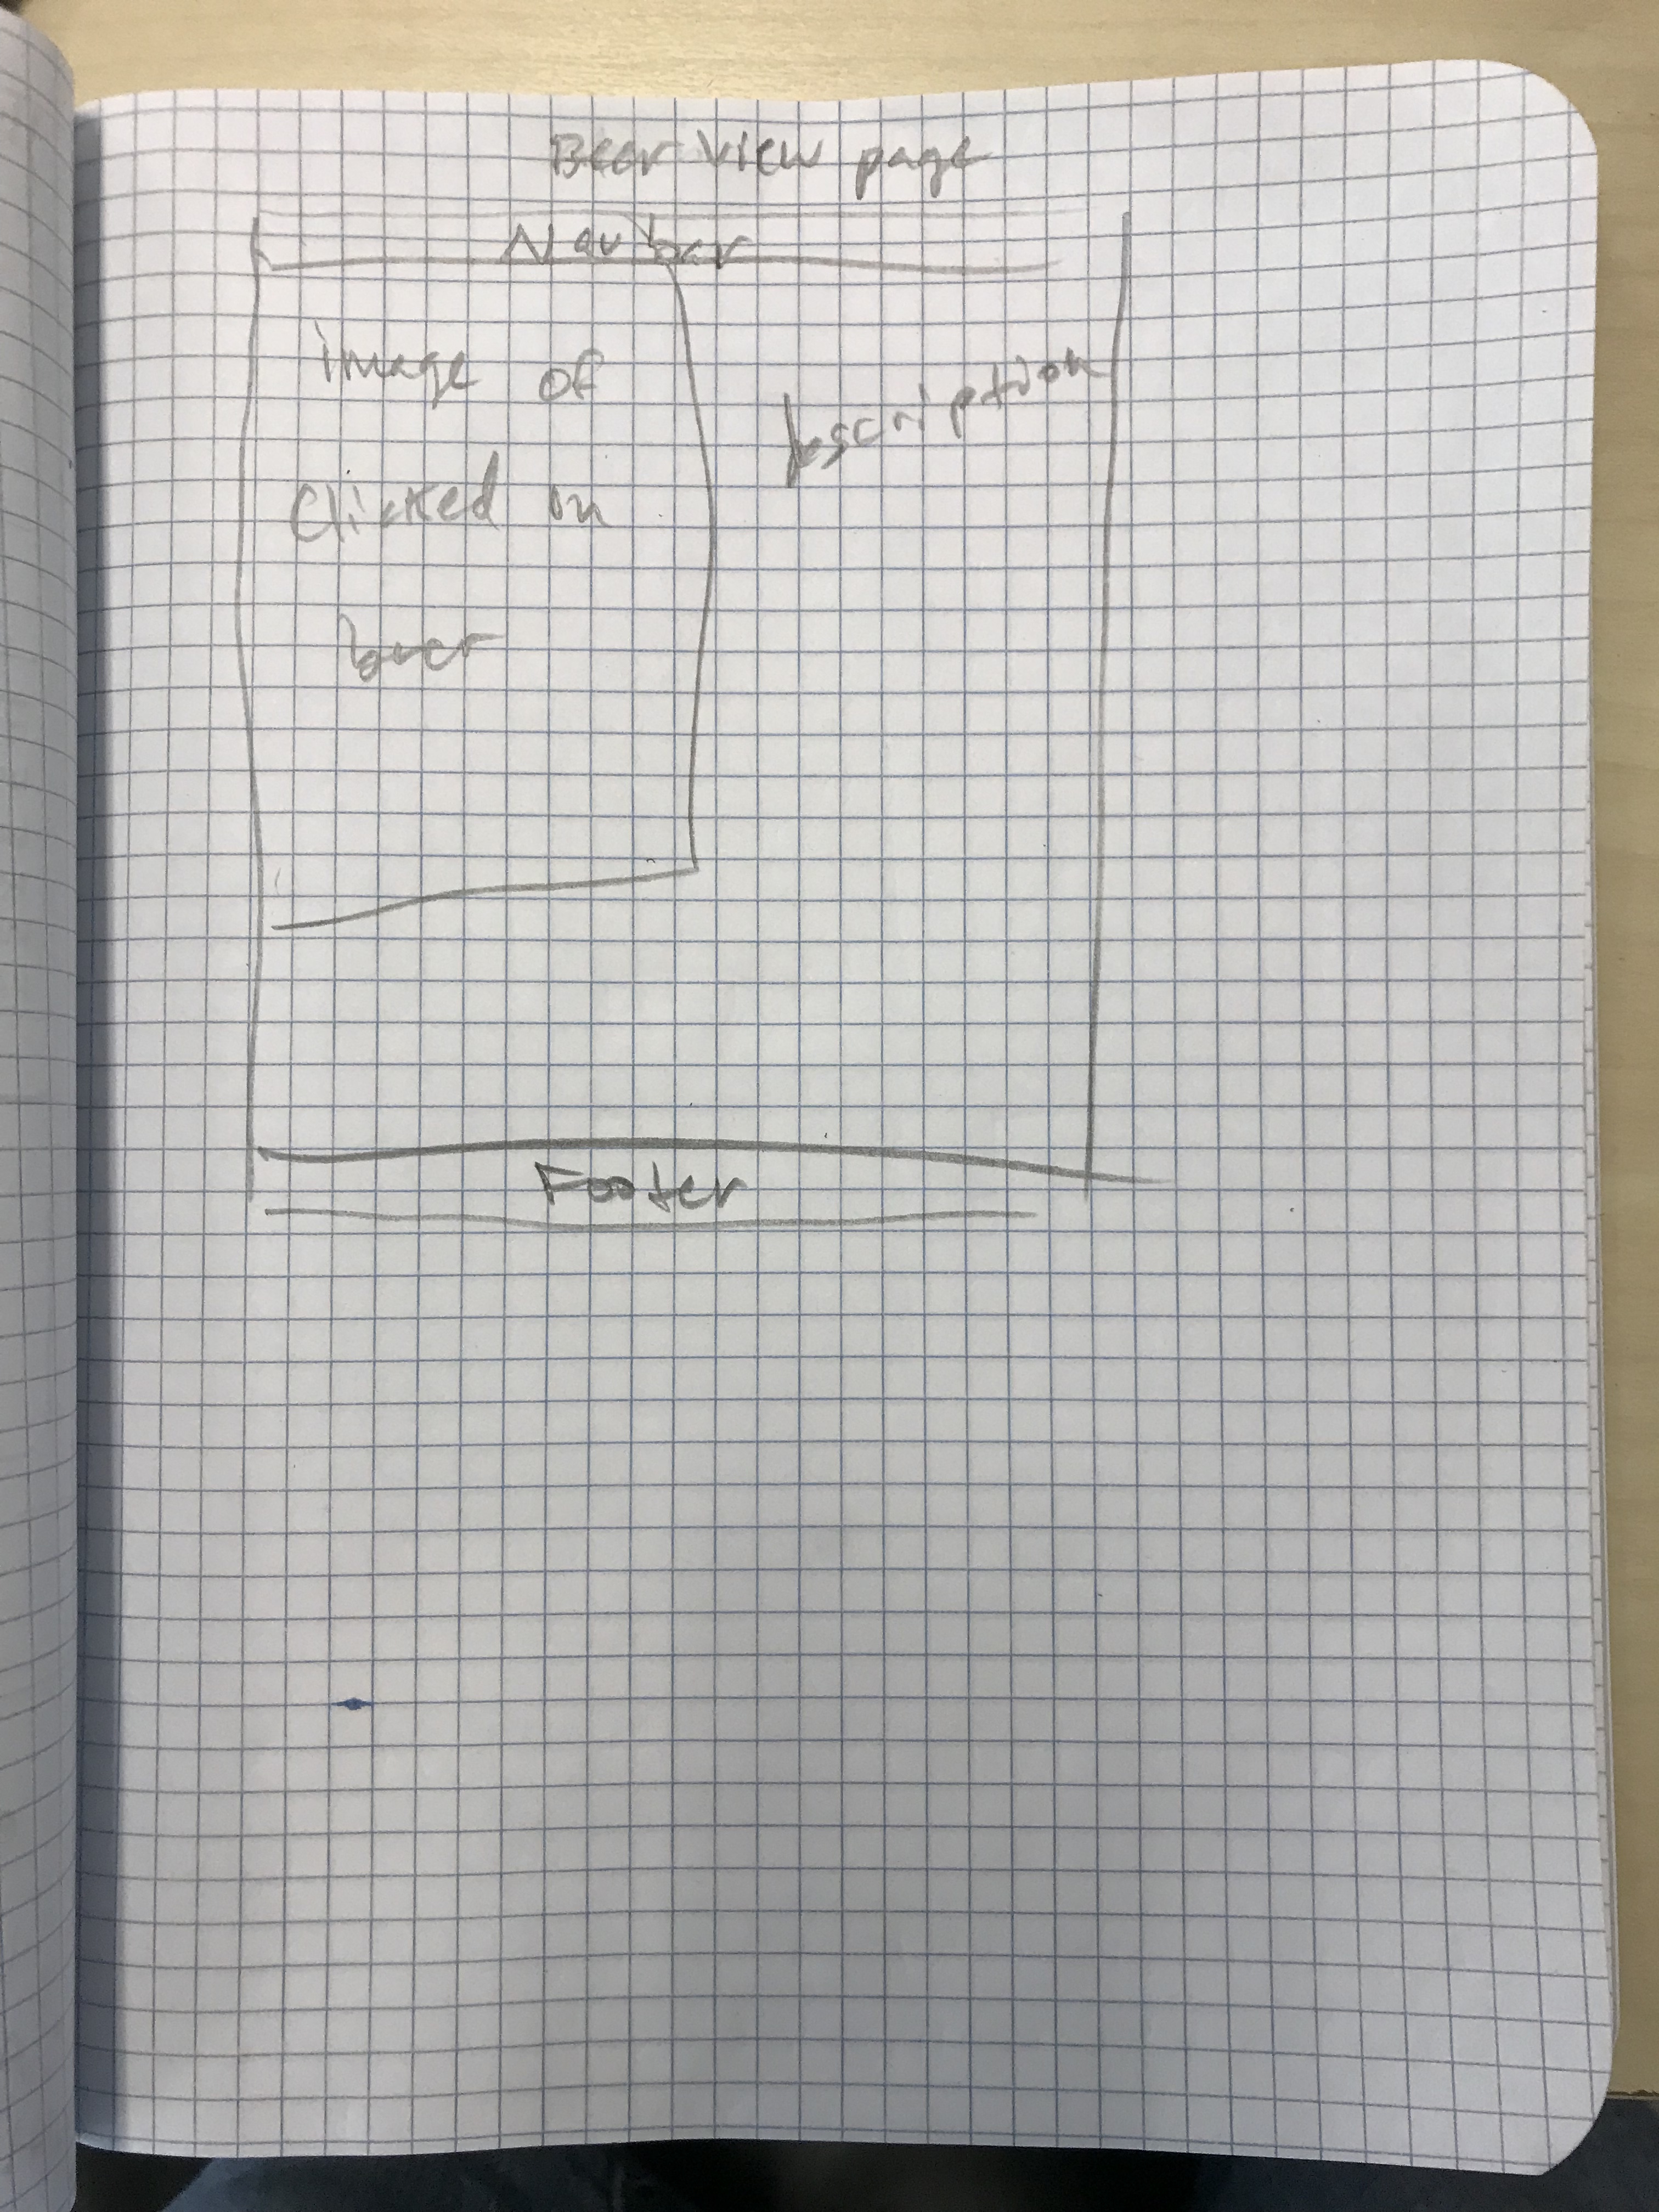 Beer view page
Navbar
image of
clicked on
beer
Description
Footer